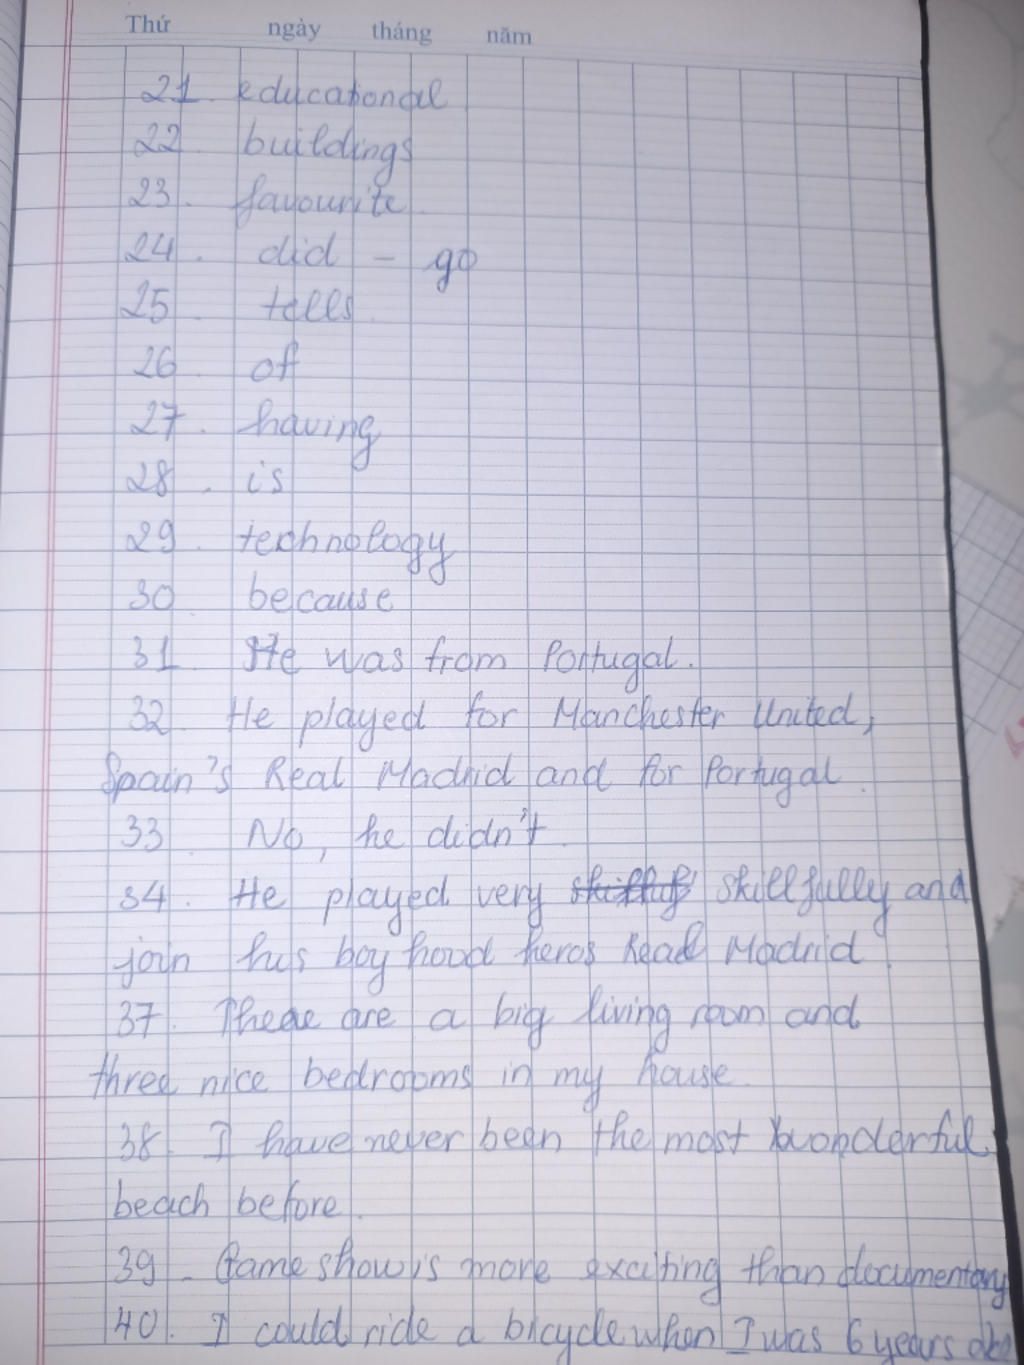 Thứ ngày tháng năm
21. educational
22 buildings
23. favourite
24. did - go
25. tells
26. of
27. having
28. is
29. technology
30. because
31. He was from Portugal.
32. He played for Manchester United,
Spain's Real Madrid and for Portugal.
33. No, he didn't.
34. He played very skillfully and
join his boy hood heros Real Madrid
37. There are a big living room and
three nice bedrooms in my house.
38. I have never been the most wonderful
beach before.
39. Game show is more exciting than documentary
40. I could ride a bicycle when I was 6 years